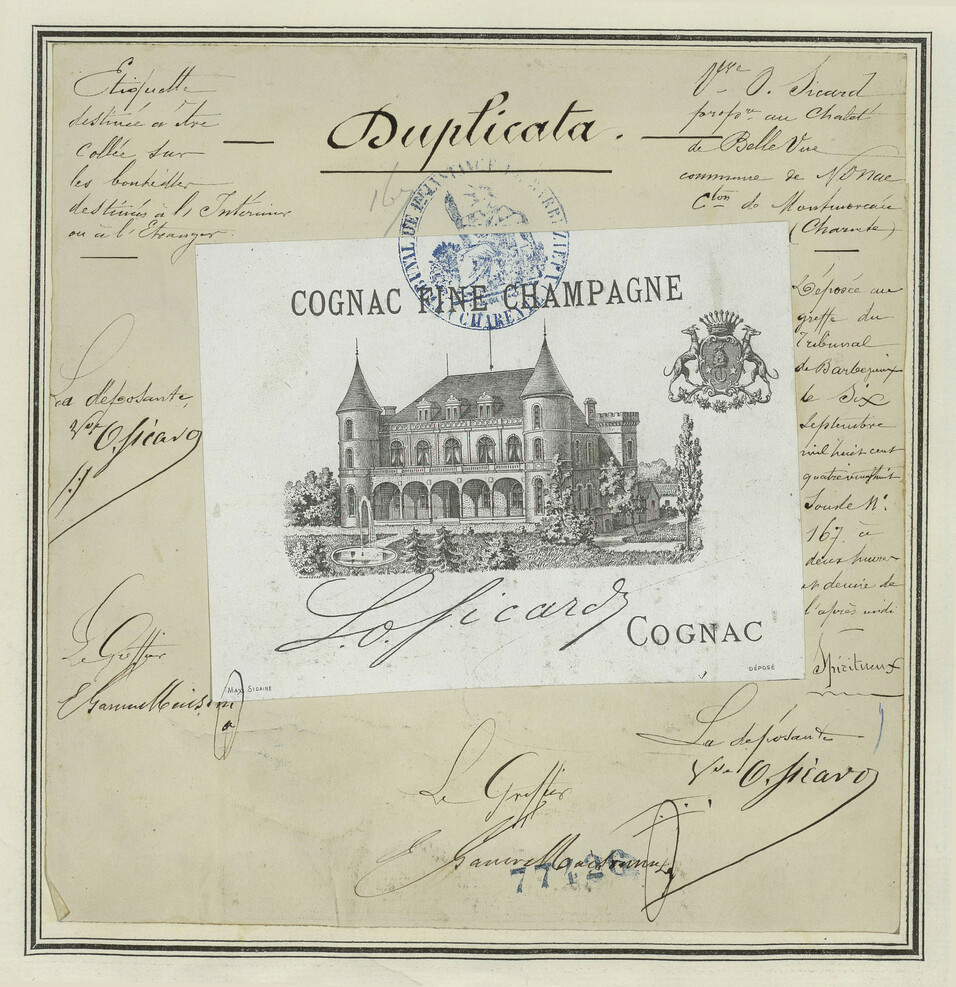 Etiquette
destinée à être
collée sur
les bouteilles
destinées à l'Intérieur
ou à l'Etranger.
Duplicata.
Vve O. Sicard
proprre au Chalet
de Belle Vue
commune de Nonac
Cton de Montmoreau
(Charente)
Déposée au
greffe du
Tribunal
de Barbezieux
le Six
Septembre
mil huit cent
quatre vingt huit
Sous le No
167 à
deux heures
et demie de
l'après midi
Spiritueux
TRIBUNAL DE 1RE INSTANCE DE BARBEZIEUX
CHARENTE
COGNAC FINE CHAMPAGNE
O. Sicard
COGNAC
DÉPOSÉ
La déposante,
Vve O. Sicard
Le Greffier
La déposante
Vve O. Sicard
Le Greffier